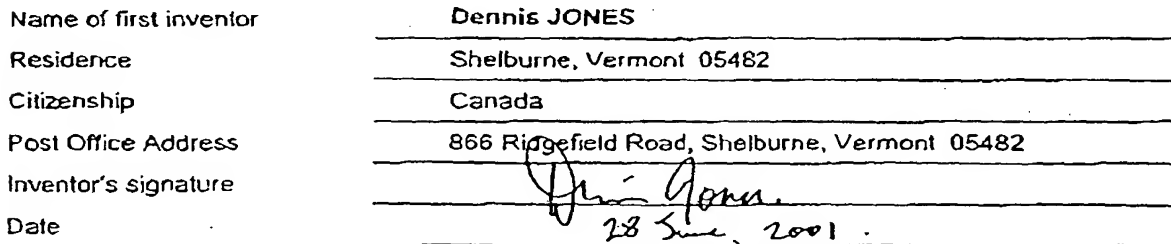 Name of first inventor Dennis JONES
Residence Shelburne, Vermont 05482
Citizenship Canada
Post Office Address 866 Ridgefield Road, Shelburne, Vermont 05482
Inventor's signature Dennis Jones.
Date 28 June, 2001.